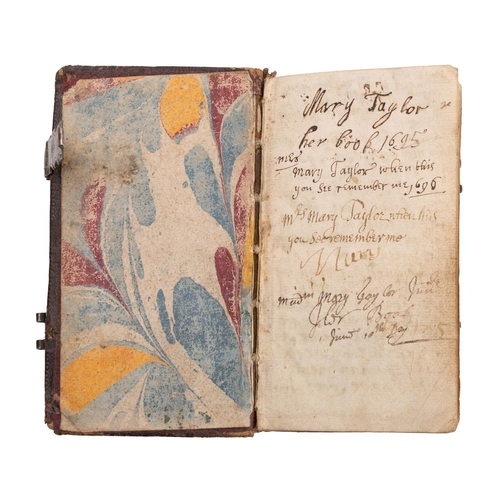 Mary Taylor
her book 1695
mrs Mary Taylor when this
you see remember me 1696
mrs Mary Taylor when this
you see remember me
Mary Taylor
her Book
June 10th Day